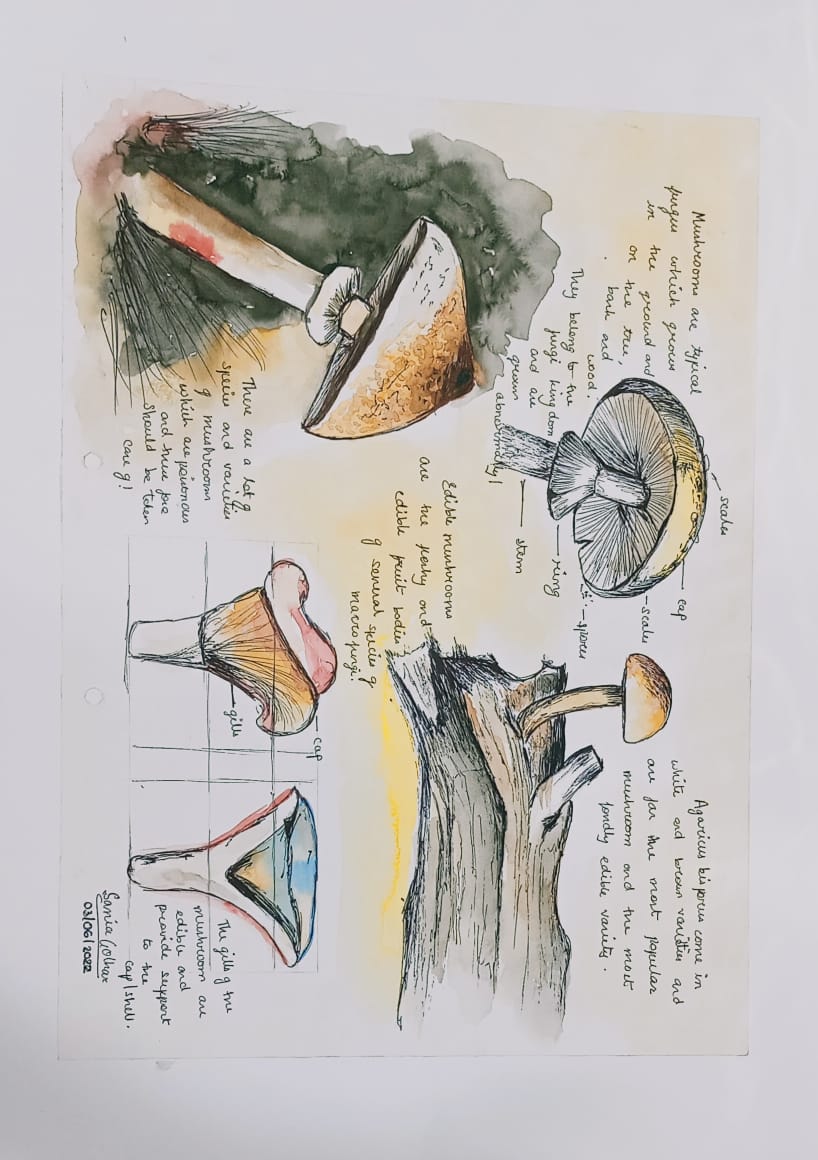 Mushrooms are typical
fungus which grows
in the ground and
on the tree,
bark and
wood.
They belong to the
fungi kingdom
and are
grown
abnormally!
scales
cap
scales
spores
ring
stem
Agaricus bisporus come in
white and brown varieties and
are far the most popular
mushroom and the most
fondly edible variety.
Edible mushrooms
are the fleshy and
edible fruit bodies
of several species of
macro fungi.
There are a lot of
species and varieties
of mushrooms
which are poisonous
and therefore
should be taken
care of!
cap
gills
The gills of the
mushroom are
edible and
provide support
to the
cap/shell.
Sania Golhar
03/06/2022